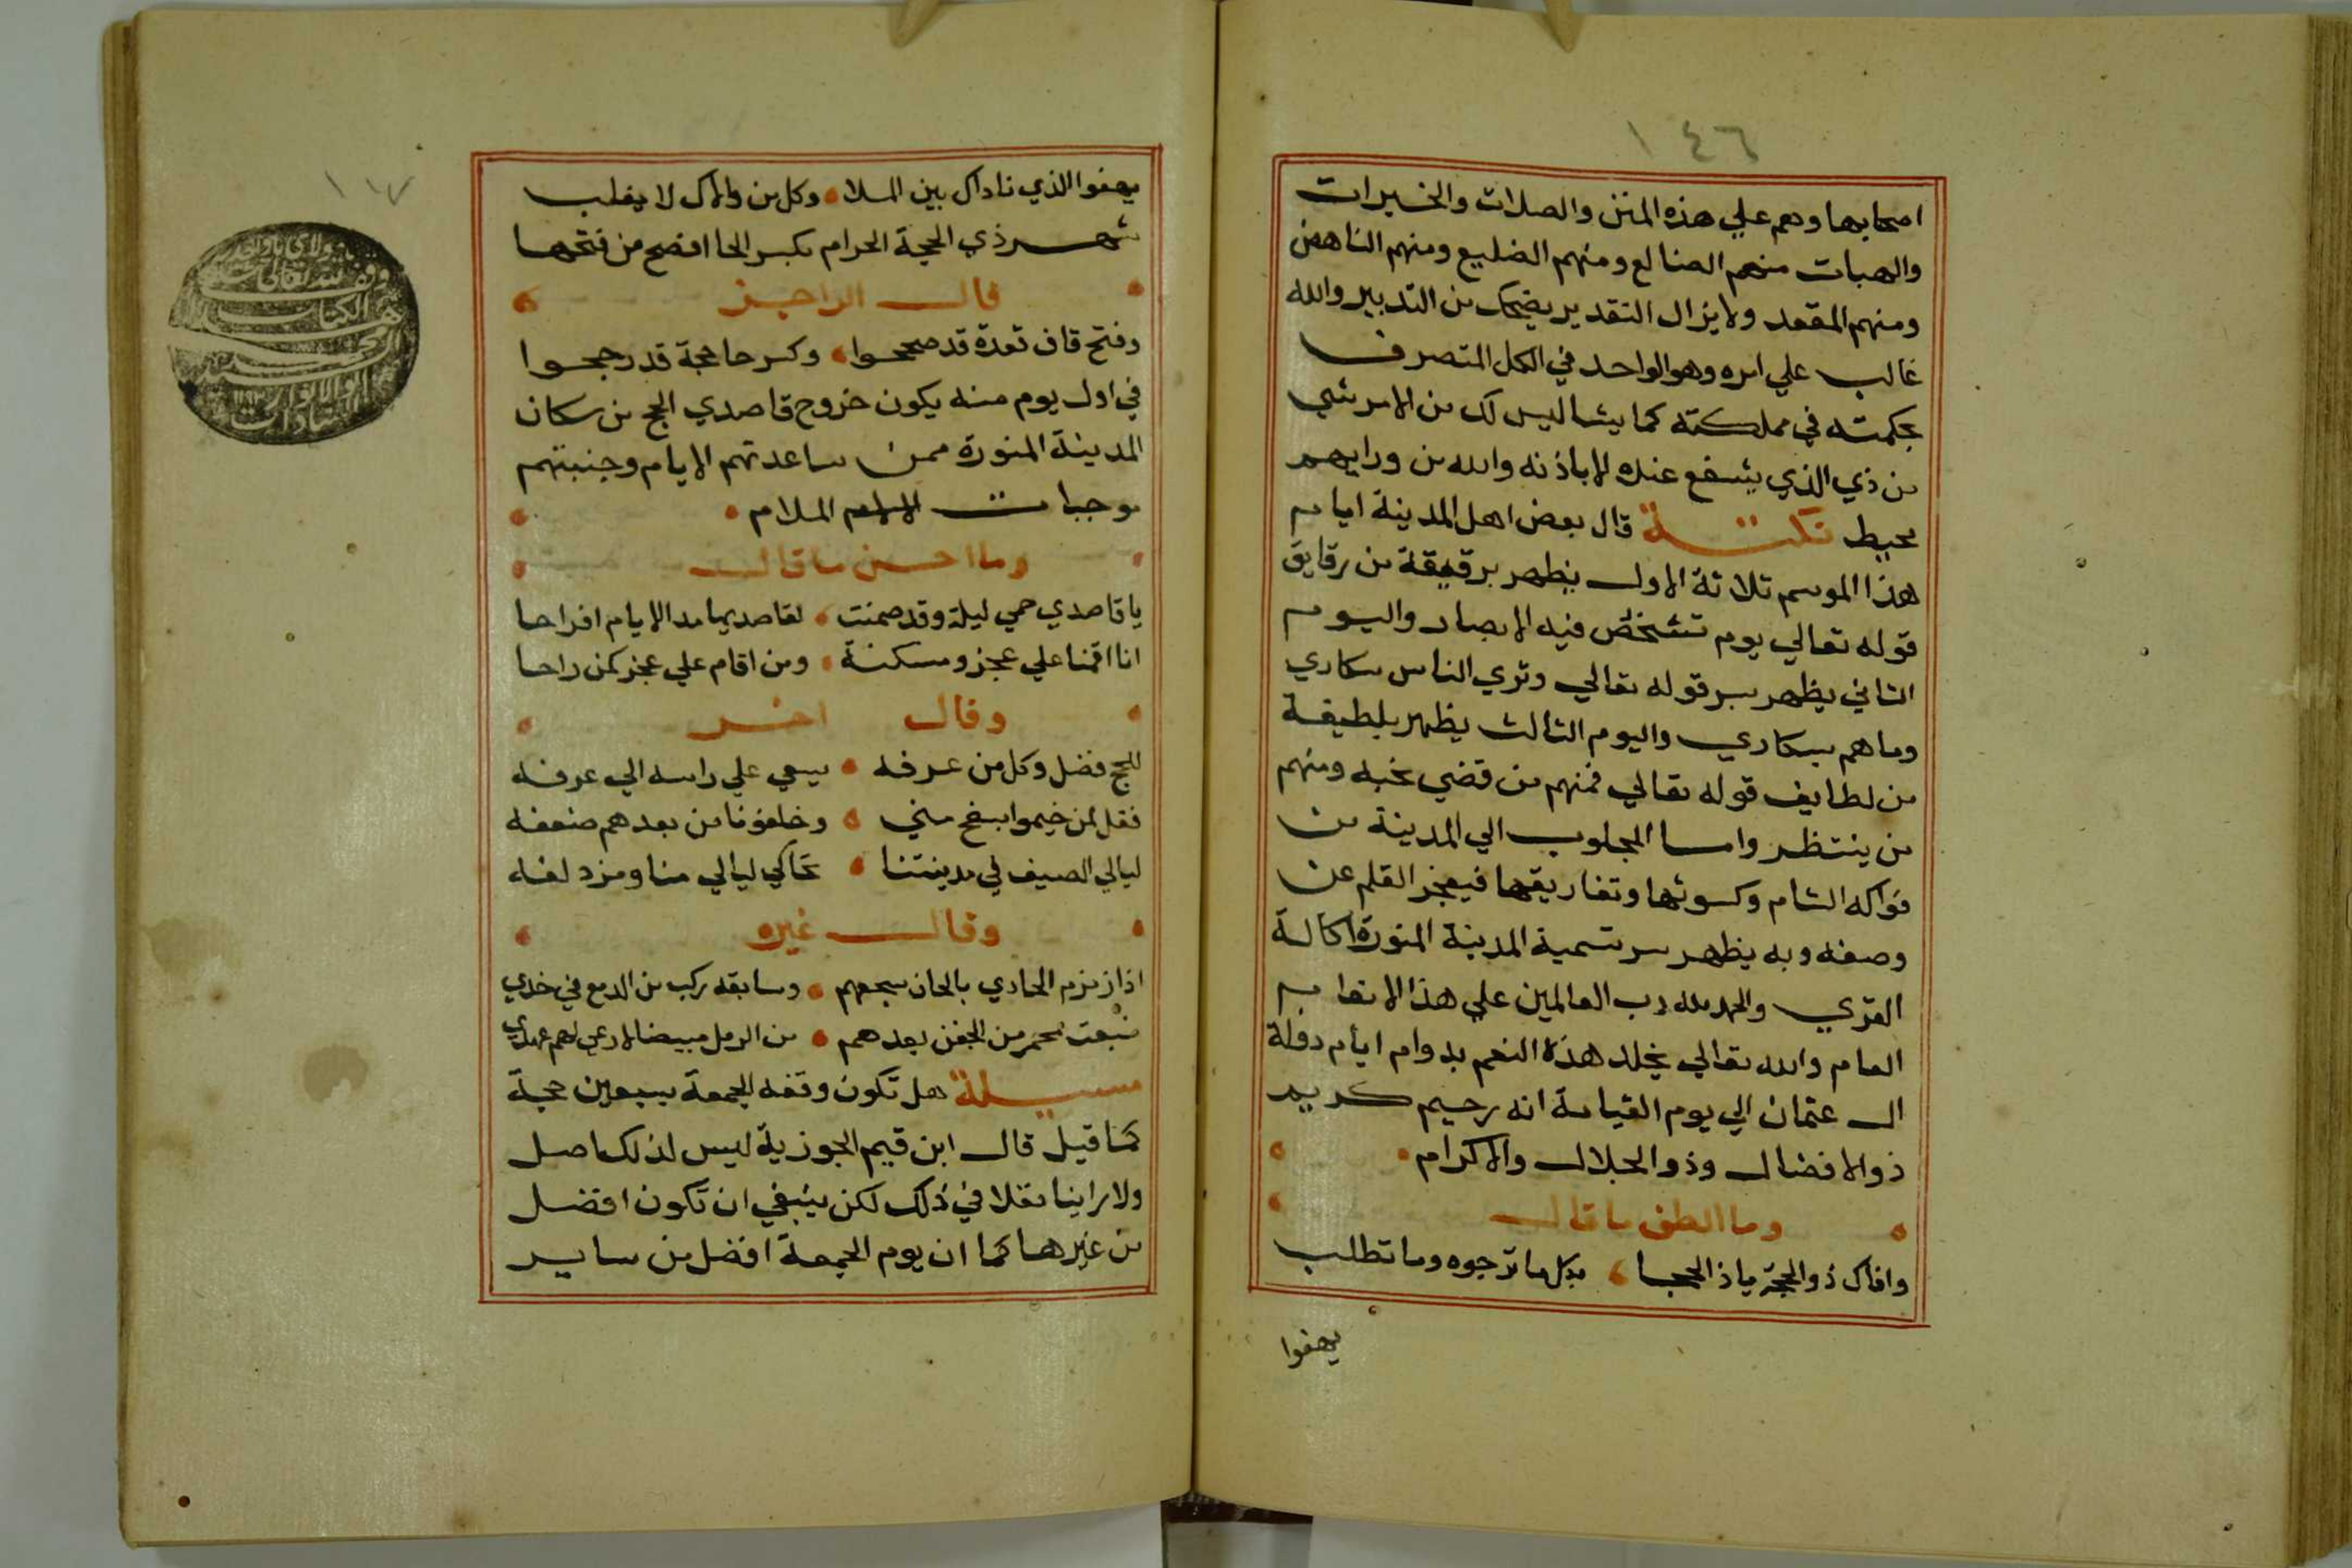 ١٤٦
اصحابها وهم علي هذه المنن والصلات والخيرات
والهبات منهم الضالع ومنهم الضليع ومنهم الناهض
ومنهم المقعد ولايزال التقدير يضحك من التدبير والله
غالب علي امره وهو الواحد في الكل المتصرف
بحكمته في مملكته كما يشا ليس لك من الامر شي
من ذي الذي يشفع عنده الا باذنه والله من ورايهم
محيط نكتة قال بعض اهل المدينة ايام
هذا الموسم ثلاثة الاول يظهر برقيقة من رقايق
قوله تعالي يوم تشخص فيه الابصار واليوم
الثاني يظهر بسر قوله تعالي وتري الناس سكاري
وما هم بسكاري واليوم الثالث يظهر بلطيفة
من لطايف قوله تعالي فمنهم من قضي نحبه ومنهم
من ينتظر واما المجلوب الي المدينة من
فواكه الشام وكسوتها وتفاريقها فيعجز القلم عن
وصفه وبه يظهر سر تسمية المدينة المنورة اكالة
القري والحمد لله رب العالمين علي هذا الانعام
العام والله تعالي يخلد هذه النعم بدوام ايام دولة
ال عثمان الي يوم القيامة انه رحيم كريم
ذو الافضال وذو الجلال والاكرام
وما الطف ما قال
وافاك ذو الحجة ياذا الحجا بكل ما ترجوه وما تطلب
يهفوا
يهفوا الذي ناداك بين الملا وكل من والاك لا يغلب
شهر ذي الحجة الحرام بكسر الحا افصح من فتحها
قال الراجز
وفتح قاف قعدة قد صححوا وكسر حا حجة قد رجحوا
في اول يوم منه يكون خروج قاصدي الحج من سكان
المدينة المنورة ممن ساعدتهم الايام وجنبتهم
موجبات الملام
وما احسن ما قال
يا قاصدي حمي ليلة وقد ضمنت لقاصديها مدا الايام افراحا
انا اقمنا علي عجز ومسكنة ومن اقام علي عجز كمن راحا
وقال اخر
للحج فضل وكل من عرفه يسعي علي راسه الي عرفه
فقل لمن خيموا بسفح مني وخلفونا من بعدهم ضعفه
ليالي الصيف في مدينتنا تحاكي ليالي منا ومزدلفه
وقال غيره
اذا زمزم الحادي بالحان سجعهم وسابقه ركب من الدمع في خدي
محمر من الجفن بعدهم من الرمل مبيضا لارعي لهم عهدي
مسيلة هل تكون وقفه الجمعة بسبعين حجة
كما قيل قال ابن قيم الجوزية ليس لذلك اصل
ولا راينا نقلا في ذلك لكن ينبغي ان تكون افضل
من غيرها كما ان يوم الجمعة افضل من ساير